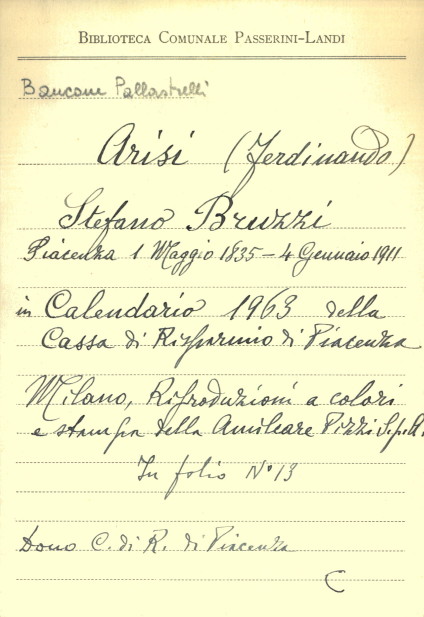 BIBLIOTECA COMUNALE PASSERINI-LANDI
Bancone Pallastrelli
Arisi (Ferdinando)
Stefano Bruzzi
Piacenza 1 Maggio 1835 - 4 Gennaio 1911
in Calendario 1963 della
Cassa di Risparmio di Piacenza
Milano, Riproduzioni a colori
e stampa della Amilcare Pizzi S.p.A.
In folio N° 13
Dono C. di R. di Piacenza
C